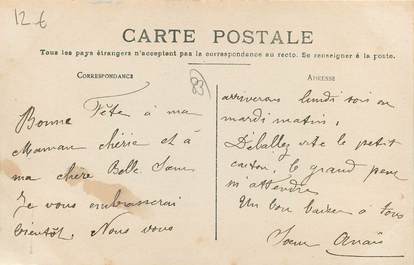 12 €
CARTE POSTALE
Tous les pays étrangers n'acceptent pas la correspondance au recto. Se renseigner à la poste.
CORRESPONDANCE
83
ADRESSE
Bonne Fête à ma
Maman chérie et à
ma chère Belle Sœur
Je vous embrasserai
bientôt. Nous vous
arriverons lundi soir ou
mardi matin.
Déballez vite le petit
carton, le grand peut
m'attendre
Un bon baiser à tous
Sœur Anaïs